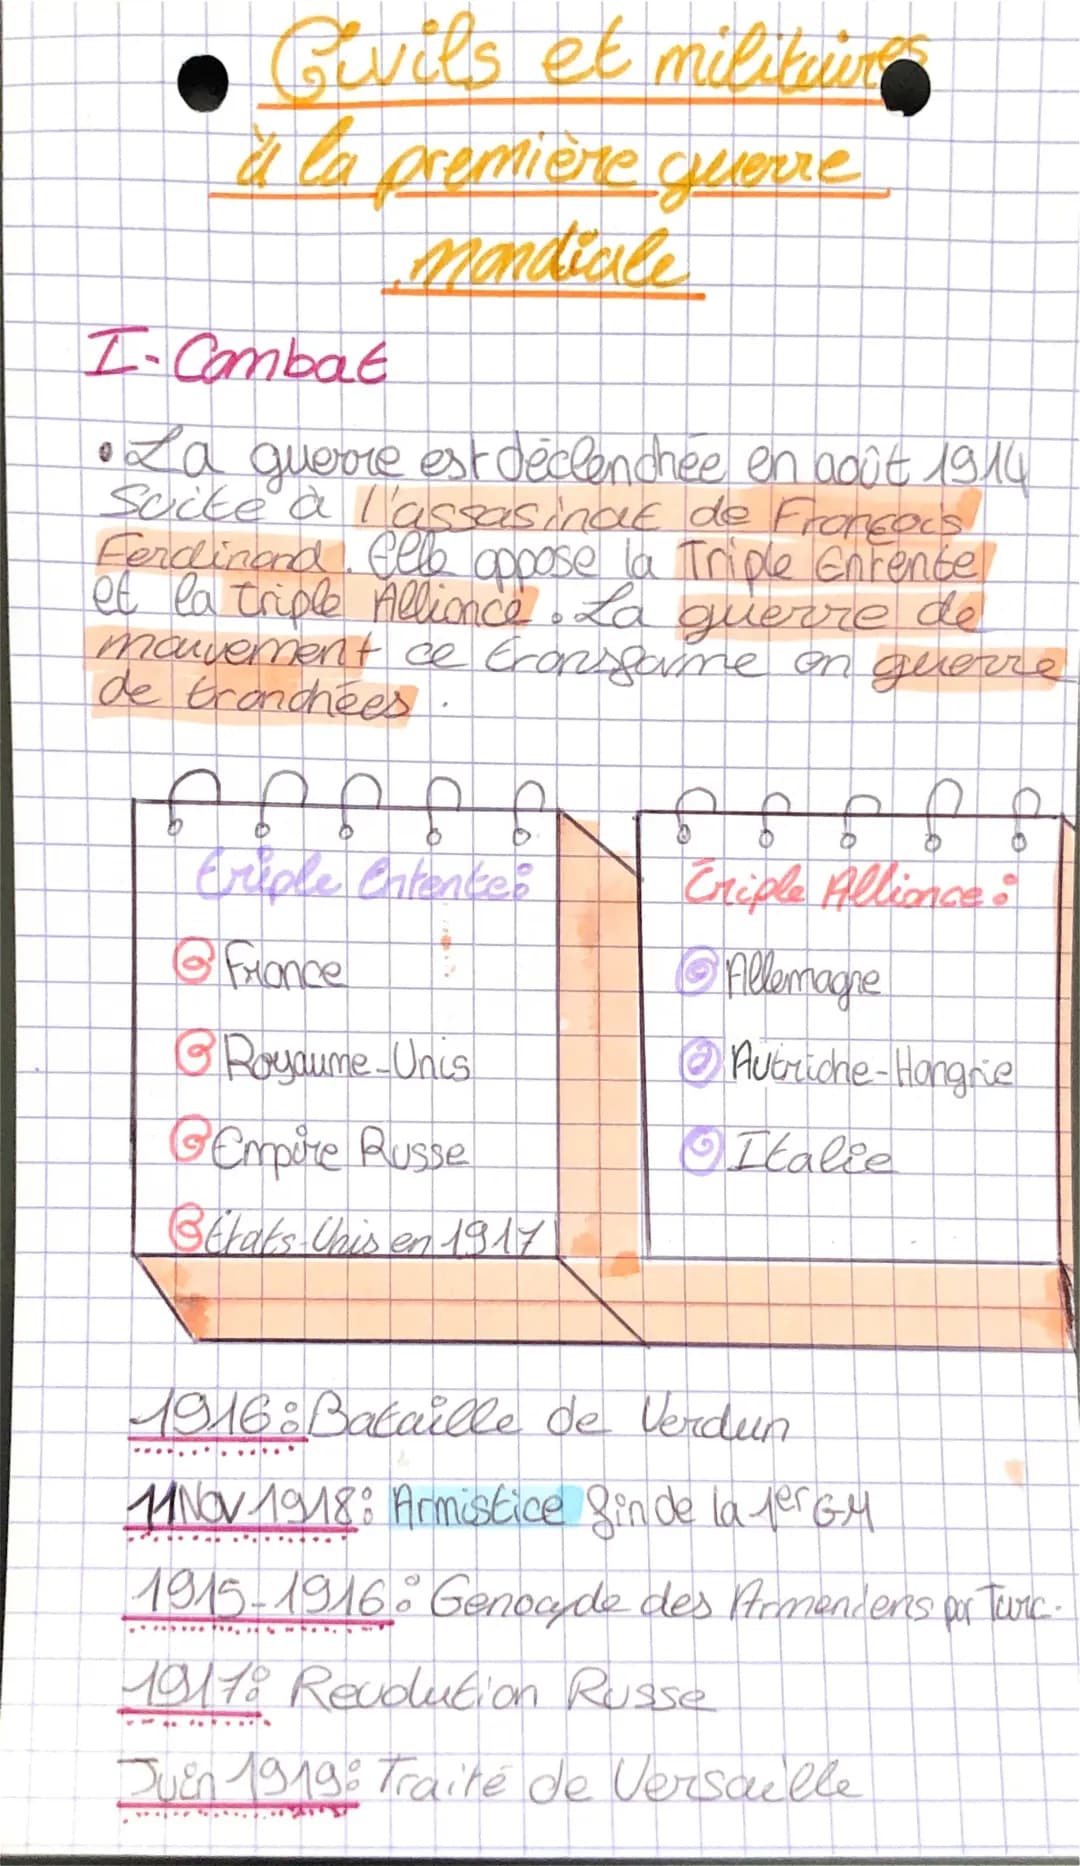 Civils et militaires
à la première guerre
mondiale
I-Combat
• La guerre est déclenchée en août 1914
Suite à l'assasinat de François
Ferdinand. Elle oppose la Triple Entente
et la triple Alliance. La guerre de
mouvement ce transforme en guerre
de tranchées.
Triple Entente:
France
Royaume-Unis
Empire Russe
États-Unis en 1917
Triple Alliance:
Allemagne
Autriche-Hongrie
Italie
1916: Bataille de Verdun
11 Nov 1918: Armistice fin de la 1er GM
1915-1916: Genocyde des Armeniens par Turc.
1917: Revolution Russe
Juin 1919: Traité de Versaille